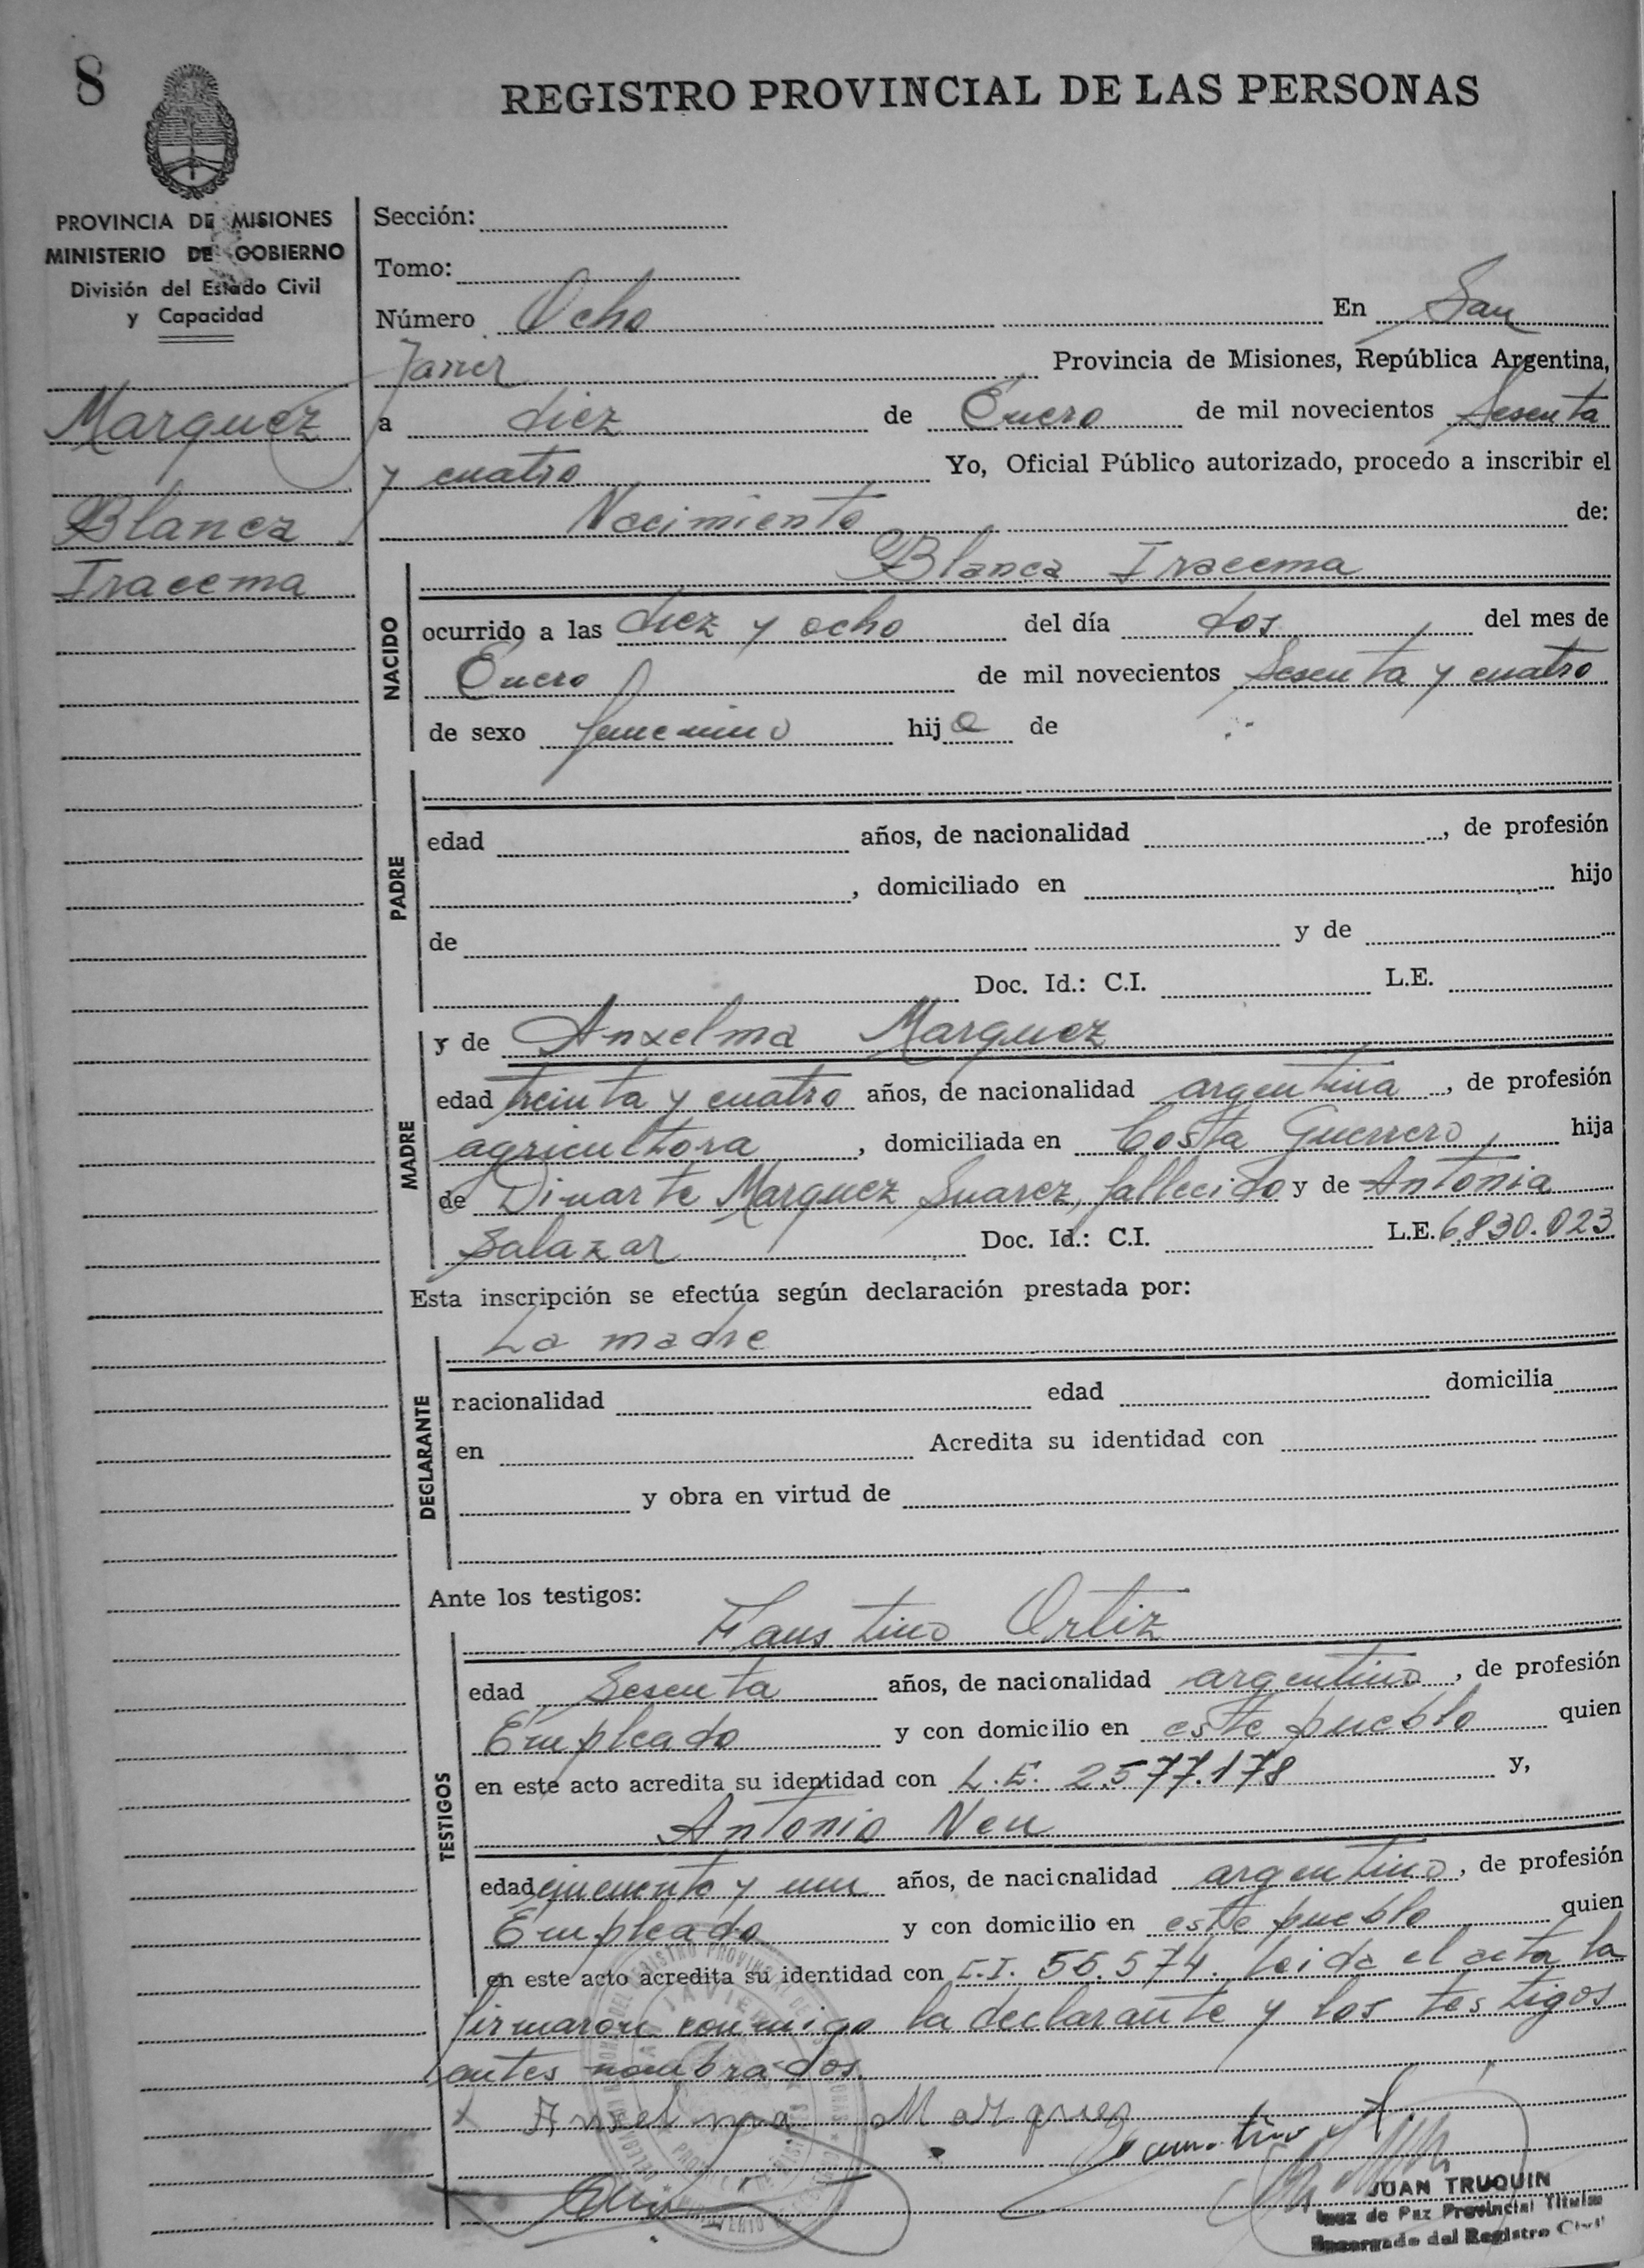 8
REGISTRO PROVINCIAL DE LAS PERSONAS
PROVINCIA DE MISIONES
MINISTERIO DE GOBIERNO
División del Estado Civil
y Capacidad
Marquez
Blanca
Iracema
Sección:
Tomo:
Número Ocho En San
Javier Provincia de Misiones, República Argentina,
a diez de Enero de mil novecientos Sesenta
y cuatro Yo, Oficial Público autorizado, procedo a inscribir el
Nacimiento de:
Blanca Iracema
NACIDO
ocurrido a las diez y ocho del día dos del mes de
Enero de mil novecientos Sesenta y cuatro
de sexo femenino hija de
PADRE
edad años, de nacionalidad , de profesión
, domiciliado en hijo
de y de
Doc. Id.: C.I. L.E.
MADRE
y de Anselma Marquez
edad treinta y cuatro años, de nacionalidad argentina , de profesión
agricultora , domiciliada en Costa Guerrero, hija
de Dinarte Marquez Suarez, fallecido y de Antonia
Salazar Doc. Id.: C.I. L.E. 6.830.023
Esta inscripción se efectúa según declaración prestada por:
La madre
DEGLARANTE
nacionalidad edad domicilia
en Acredita su identidad con
y obra en virtud de
Ante los testigos:
TESTIGOS
Faustino Ortiz
edad Sesenta años, de nacionalidad argentino , de profesión
Empleado y con domicilio en este pueblo quien
en este acto acredita su identidad con L.E. 2.577.178 y,
Antonio Neu
edad cincuenta y un años, de nacionalidad argentino , de profesión
Empleado y con domicilio en este pueblo quien
en este acto acredita su identidad con C.I. 56.574. Leida el acta la
firmaron conmigo la declarante y los testigos
antes nombrados.
Anselma Marquez
JUAN TRUQUIN
Juez de Paz Provincial Titular
Encargado del Registro Civil